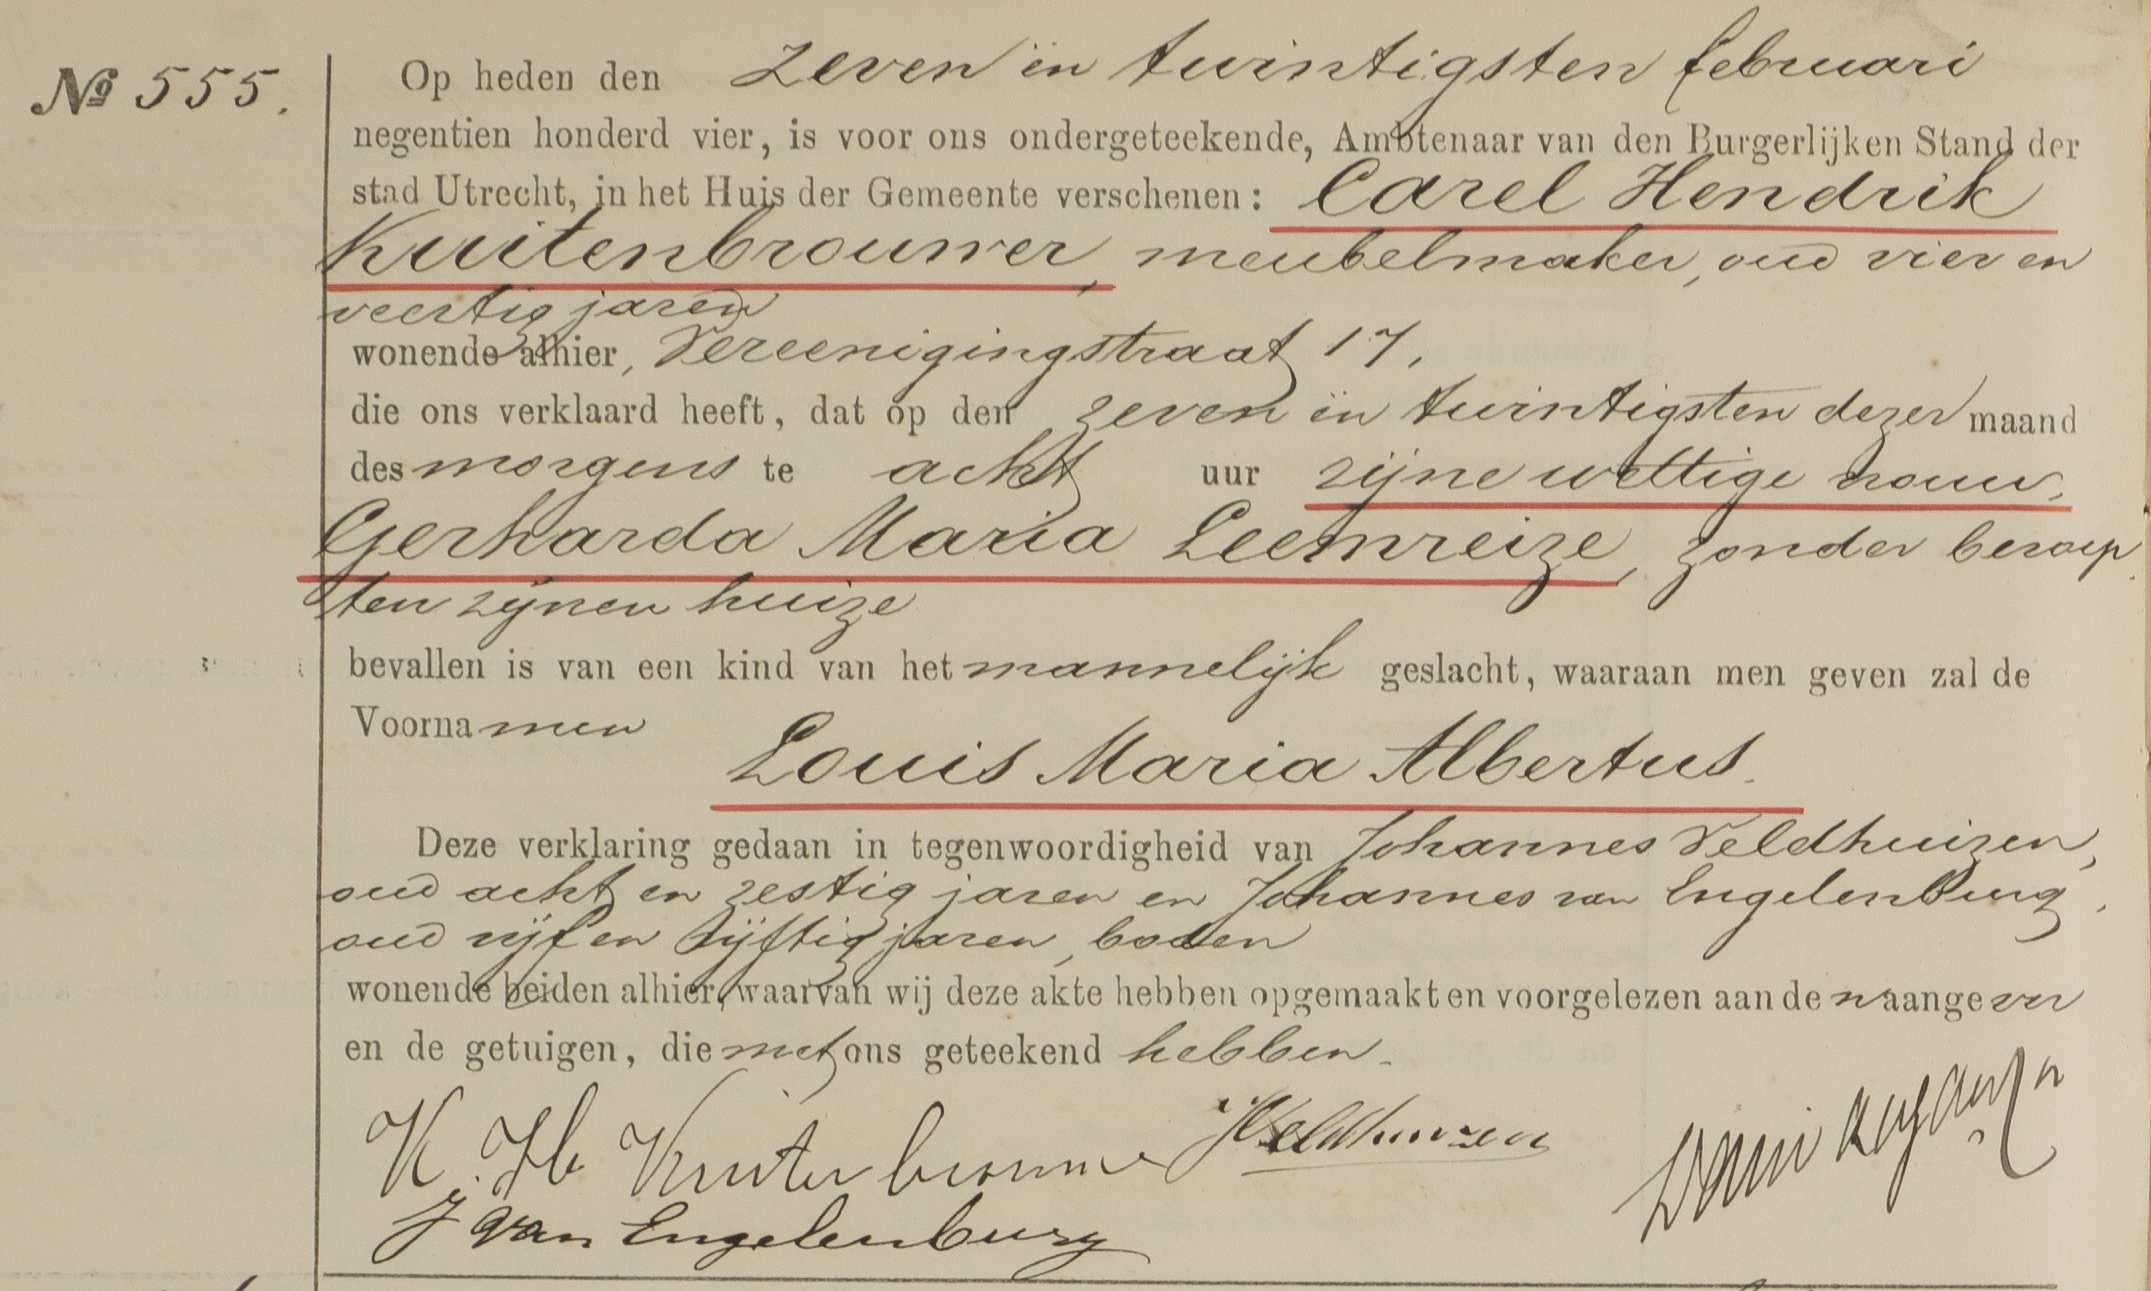 No 555.
Op heden den zeven en twintigsten februari
negentien honderd vier, is voor ons ondergeteekende, Ambtenaar van den Burgerlijken Stand der
stad Utrecht, in het Huis der Gemeente verschenen: Carel Hendrik
Kuitenbrouwer, meubelmaker, oud vier en
veertig jaren
wonende alhier, Vereenigingstraat 17,
die ons verklaard heeft, dat op den zeven en twintigsten dezer maand
des morgens te acht uur zijne wettige vrouw,
Gerharda Maria Leemreize, zonder beroep
ten zijnen huize
bevallen is van een kind van het mannelijk geslacht, waaraan men geven zal de
Voornamen
Louis Maria Albertus.
Deze verklaring gedaan in tegenwoordigheid van Johannes Veldhuizen,
oud acht en zestig jaren en Johannes van Engelenburg,
oud vijf en vijftig jaren, boden
wonende beiden alhier, waarvan wij deze akte hebben opgemaakt en voorgelezen aan den aangever
en de getuigen, die met ons geteekend hebben.
K. H. Kuitenbrouwer JVeldhuizen
J van Engelenburg